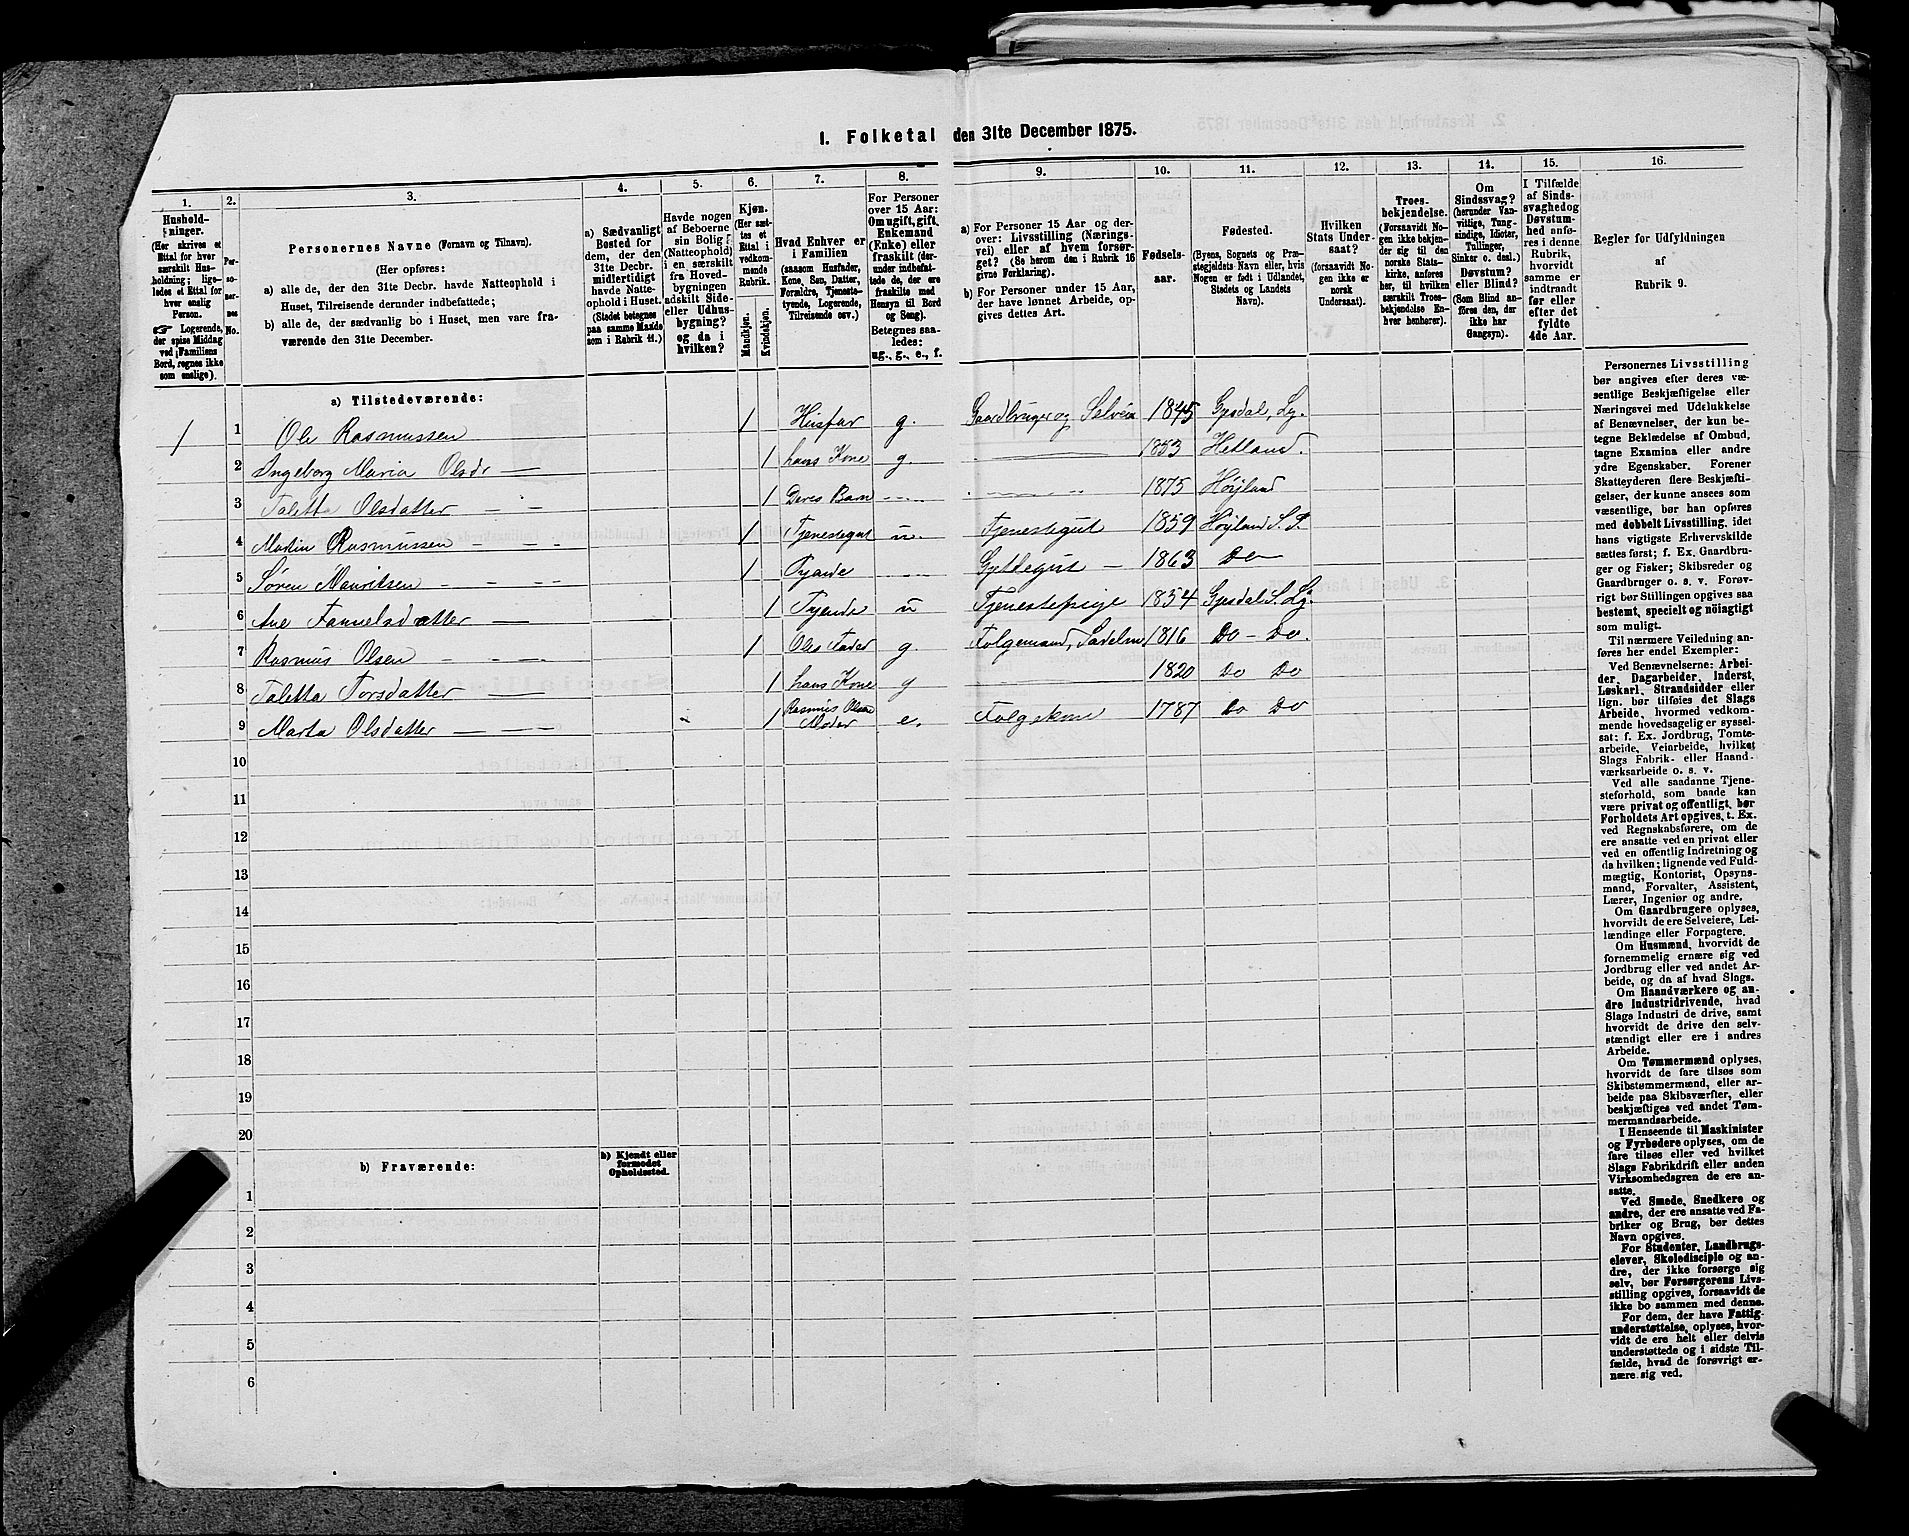 1. Folketal den 31te December 1875.
1. 2. 3. 4. 5. 6. 7. 8. 9. 10. 11. 12. 13. 14. 15. 16.
Hushold-
ninger.
(Her skrives et
Ettal for hver
særskilt Hus-
holdning; lige-
ledes et Ettal for
hver enslig
Person.
☞ Logerende,
der spise Middag
ved Familiens
Bord, regnes ikke
som enslige).
Per-
so-
ner-
nes
No.
Personernes Navne (Fornavn og Tilnavn).
(Her opføres:
a) alle de, der den 31te Decbr. havde Natteophold i
Huset, Tilreisende derunder indbefattede;
b) alle de, der sædvanlig bo i Huset, men vare fra-
værende den 31te December.
a) Sædvanligt
Bosted for
dem, der den
31te Decbr.
midlertidigt
havde Natte-
ophold i Huset.
(Stedet betegnes
paa samme Maade
som i Rubrik 11.)
Havde nogen
af Beboerne
sin Bolig
(Natteophold)
i en særskilt
fra Hoved-
bygningen
adskilt Side-
eller Udhus-
bygning?
og da i
hvilken?
Kjøn.
(Her sæt-
tes et
Ettal i
vedkom-
mende
Rubrik.
Mandkjøn.
Kvindekjøn.
Hvad Enhver er
i Familien
(saasom Husfader,
Kone, Søn, Datter,
Forældre, Tjeneste-
tyende, Logerende,
Tilreisende osv.)
For Personer
over 15 Aar:
Om ugift, gift,
Enkemand
(Enke) eller
fraskilt (der-
under indbefat-
tede de, der ere
fraskilte med
Hensyn til Bord
og Seng).
Betegnes saa-
ledes:
ug., g., e., f.
a) For Personer 15 Aar og der-
over: Livsstilling (Nærings-
vei) eller af hvem forsør-
get? (Se herom den i Rubrik 16
givne Forklaring).
b) For Personer under 15 Aar,
der have lønnet Arbeide, op-
gives dettes Art.
Fødsels-
aar.
Fødested.
(Byens, Sognets og Præ-
stegjeldets Navn eller, hvis
Nogen er født i Udlandet,
Stedets og Landets
Navn).
Hvilken
Stats Under-
saat?
(forsaavidt No-
gen ikke er
norsk
Undersaat).
Troes-
bekjendelse.
(Forsaavidt No-
gen ikke bekjen-
der sig til den
norske Stats-
kirke, anføres
her, til hvilken
særskilt Troes-
bekjendelse En-
hver henhører).
Om
Sindssvag?
(herunder Van-
vittige, Tung-
sindige, Idioter,
Tullinger,
Sinker o. desl.)
Døvstum?
eller Blind?
(Som Blind an-
føres den, der
ikke har
Gangsyn).
I Tilfælde
af Sinds-
svaghed og
Døvstum-
hed anfø-
res i denne
Rubrik,
hvorvidt
samme er
indtraadt
før eller
efter det
fyldte
4de Aar.
Regler for Udfyldningen
af
Rubrik 9.
a) Tilstedeværende:
1 1 Ole Rasmussen 1 Husfar g. Gaardbruger og Selveier 1845 Gjesdal, Ly.
2 Ingeborg Maria Olsdr — 1 hans Kone g. — 1853 Hetland.
3 Taletta Olsdatter — — 1 Deres Barn — 1875 Høyland
4 Martin Rasmussen — — — 1 Tjenestegut u. Tjenestegut 1859 Høyland S. P.
5 Søren Mauritsen — — — 1 Tyende — Gjettegut — 1863 Do
6 Ane Tannelsdatter — 1 Tyende u Tjenestepige 1854 Gjesdal S Ly.
7 Rasmus Olsen — — — 1 Oles Fader g. Folgemand, Sadelm 1816 Do — Do.
8 Taletta Torsdatter — — 1 hans Kone g — 1820 Do Do
9 Marta Olsdatter — — 1 Rasmus Olsens Moder e. Folgekone 1787 Do Do
10
11
12
13
14
15
16
17
18
19
20
b) Fraværende:
b) Kjendt eller
formodet
Opholdssted.
1
2
3
4
5
6
Personernes Livsstilling
bør angives efter deres væ-
sentlige Beskjæftigelse eller
Næringsvei med Udelukkelse
af Benævnelser, der kun be-
tegne Beklædelse af Ombud,
tagne Examina eller andre
ydre Egenskaber. Forener
Skatteyderen flere Beskjæfti-
gelser, der kunne ansees som
væsentlige, bør han opføres
med dobbelt Livsstilling, idet
hans vigtigste Erhvervskilde
sættes først; f. Ex. Gaardbru-
ger og Fisker; Skibsreder og
Gaardbruger o. s. v. Forøv-
rigt bør Stillingen opgives saa
bestemt, specielt og nøiagtigt
som muligt.
Til nærmere Veiledning an-
føres her endel Exempler:
Ved Benævnelserne: Arbei-
der, Dagarbeider, Inderst,
Løskarl, Strandsidder eller
lign. bør tilføies det Slags
Arbeide, hvormed vedkom-
mende hovedsagelig er syssel-
sat; f. Ex. Jordbrug, Tomte-
arbeide, Veiarbeide, hvilket
Slags Fabrik- eller Haand-
værksarbeide o. s. v.
Ved alle saadanne Tjene-
steforhold, som baade kan
være privat og offentligt, bør
Forholdets Art opgives, t. Ex.
ved Regnskabsførere, om de
ere ansatte ved en privat eller
ved en offentlig Indretning og
da hvilken; lignende ved Fuld-
mægtig, Kontorist, Opsyns-
mand, Forvalter, Assistent,
Lærer, Ingeniør og andre.
Om Gaardbrugere oplyses,
hvorvidt de ere Selveiere, Lei-
lændinge eller Forpagtere.
Om Husmænd, hvorvidt de
fornemmelig ernære sig ved
Jordbrug eller ved andet Ar-
beide, og da af hvad Slags.
Om Haandværkere og an-
dre Industridrivende, hvad
Slags Industri de drive, samt
hvorvidt de drive den selv-
stændigt eller ere i andres
Arbeide.
Om Tømmermænd oplyses,
hvorvidt de fare tilsøs som
Skibstømmermænd, eller ar-
beide paa Skibsværfter, eller
beskjæftiges ved andet Tøm-
mermandsarbeide.
I Henseende til Maskinister
og Fyrbødere oplyses, om de
fare tilsøs eller ved hvilket
Slags Fabrikdrift eller anden
Virksomhedsgren de ere an-
satte.
Ved Smede, Snedkere og
andre, der ere ansatte ved Fa-
briker og Brug, bør dettes
Navn opgives.
For Studenter, Landbrugs-
elever, Skoledisciple og an-
dre, der ikke forsørge sig
selv, bør Forsørgerens Livs-
stilling opgives, forsaavidt de
ikke bo sammen med denne.
For dem, der have Fattig-
understøttelse, oplyses, hvor-
vidt de ere helt eller delvis
understøttede og i sidste Til-
fælde, hvad de forøvrigt er-
nære sig ved.